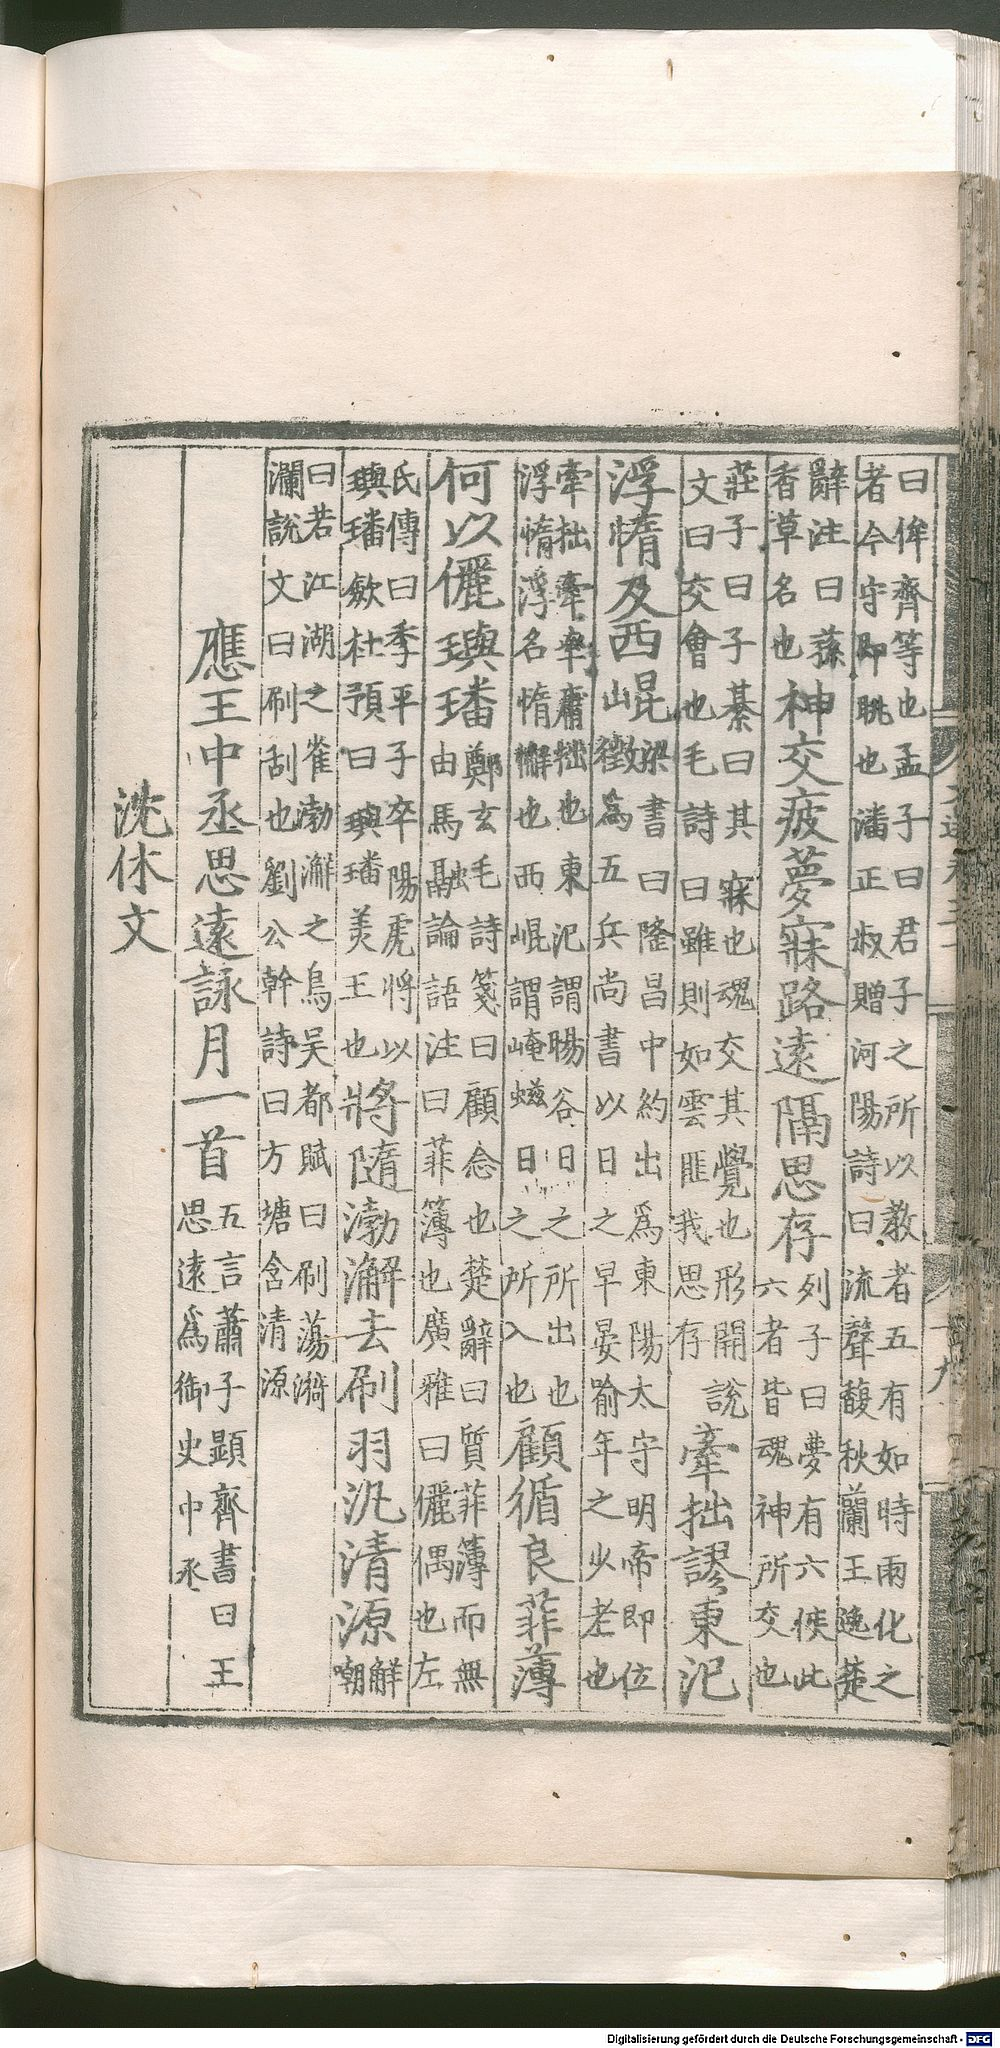 曰侔齊等也孟子曰君子之所以教者五有如時雨化之
者今守即眺也潘正叔贈河陽詩曰流聲馥秋蘭王逸楚
辭注曰蓀
香草名也
神交疲夢寐路遠隔思存
列子曰夢有六候此
六者皆魂神所交也
莊子曰子綦曰其寐也魂交其覺也形開說
文曰交會也毛詩曰雖則如雲匪我思存
牽拙謬東汜
浮惰及西崐
山
梁書曰隆昌中約出爲東陽太守明帝即位
徵爲五兵尚書以日之早晏喻年之少老也
牽拙牽率庸拙也東汜謂暘谷日之所出也
浮惰浮名惰懈也西崐謂崦嵫日之所入也
顧循良菲薄
何以儷璵璠
鄭玄毛詩箋曰顧念也楚辭曰質菲薄而無
由馬融論語注曰菲薄也廣雅曰儷偶也左
氏傳曰季平子卒陽虎將以
璵璠歛杜預曰璵璠美玉也
將隨渤澥去刷羽汎清源
解
嘲
曰若江湖之雀渤澥之鳥吳都賦曰刷蕩漪
瀾說文曰刷刮也劉公幹詩曰方塘含清源
應王中丞思遠詠月一首
五言蕭子顯齊書曰王
思遠爲御史中丞
沈休文
Digitalisierung gefördert durch die Deutsche Forschungsgemeinschaft - DFG